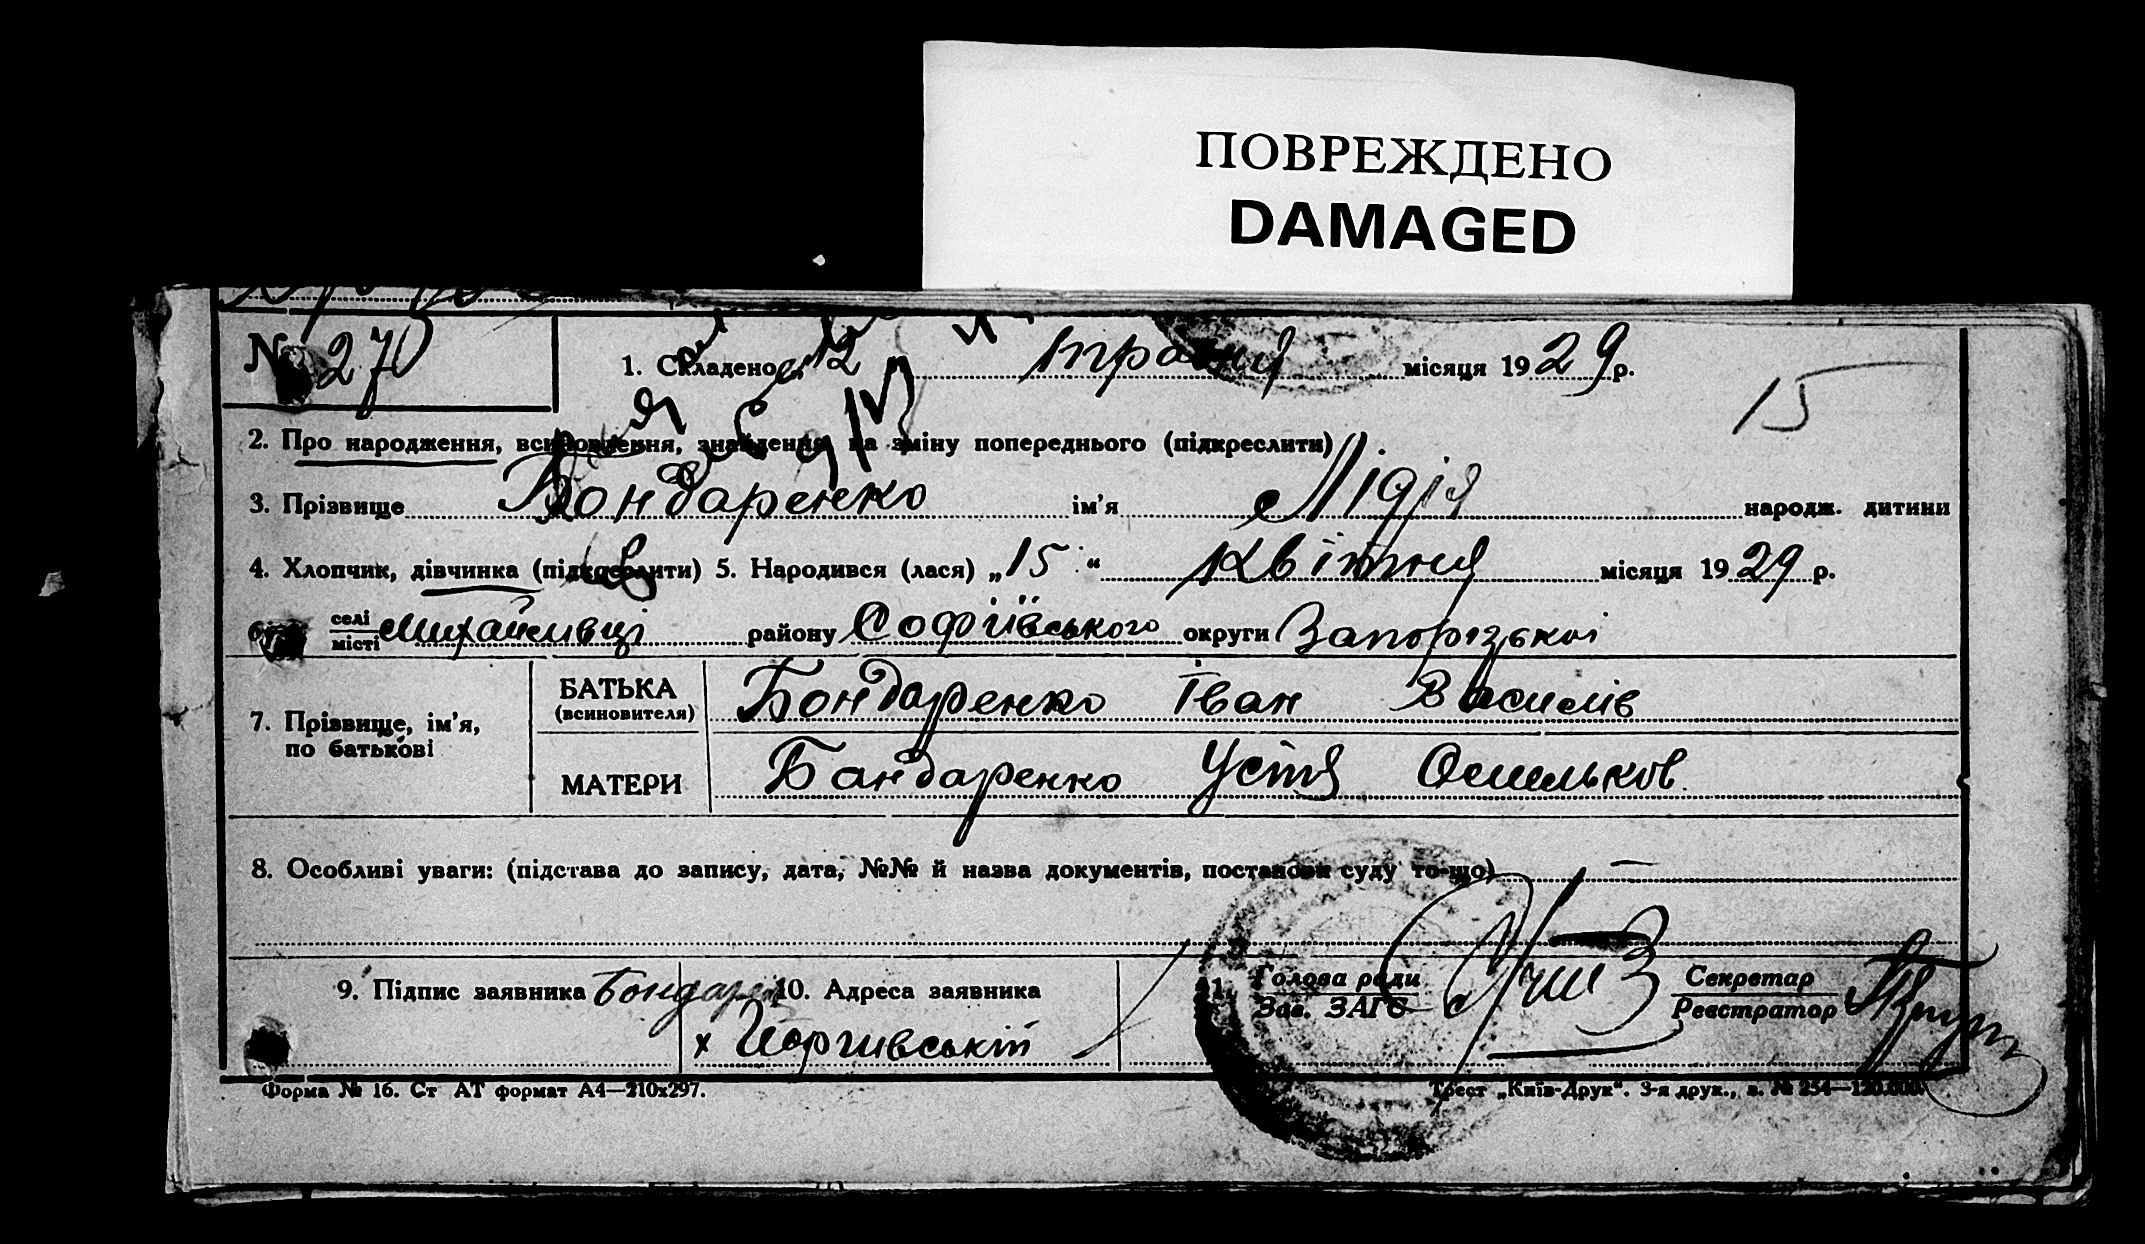 ПОВРЕЖДЕНО
DAMAGED
№ 270
1. Складено 12 травня місяця 1929 р.
15
2. Про народження, всиновлення, знайдення на зміну попереднього (підкреслити)
3. Прізвище Бондаренко ім'я Лідія народж. дитини
4. Хлопчик, дівчинка (підкреслити) 5. Народився (лася) „15“ квітня місяця 1929 р.
6. селі
місті Михайлівці району Софіївського округи Запорізької
7. Прізвище, ім'я, по батькові
БАТЬКА (всиновителя) Бондаренко Іван Василів
МАТЕРИ Бандаренко Устя Омельков
8. Особливі уваги: (підстава до запису, дата, №№ й назва документів, постанови суду то-що) —
9. Підпис заявника Бондар 10. Адреса заявника
х
11. Голова ради
Зав. ЗАГС
Секретар
Реєстратор
Форма № 16. Ст АТ формат А4—210х297.
Трест „Київ-Друк“. 3-я друк., з. № 254—120.000.